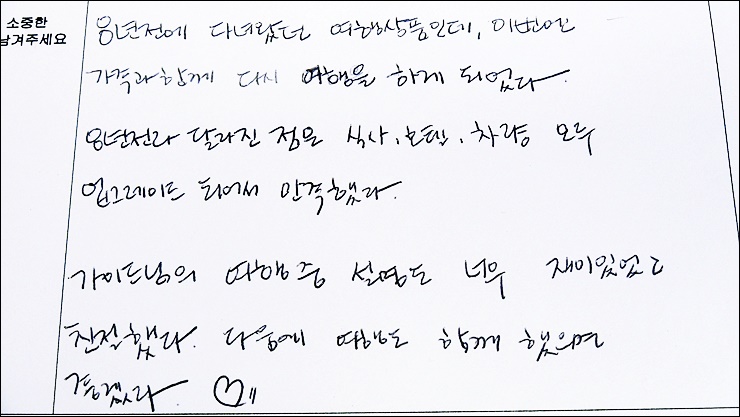 소중한
남겨주세요
8년전에 다녀왔던 여행상품인데, 이번에는
가족과 함께 다시 여행을 하게 되었다.
8년전과 달라진 점은 식사, 호텔, 차량 모두
업그레이드 되어서 만족했다.
가이드님의 여행중 설명도 너무 재미있었고
친절했다. 다음에 여행도 함께 했으면
좋겠다. ♡"